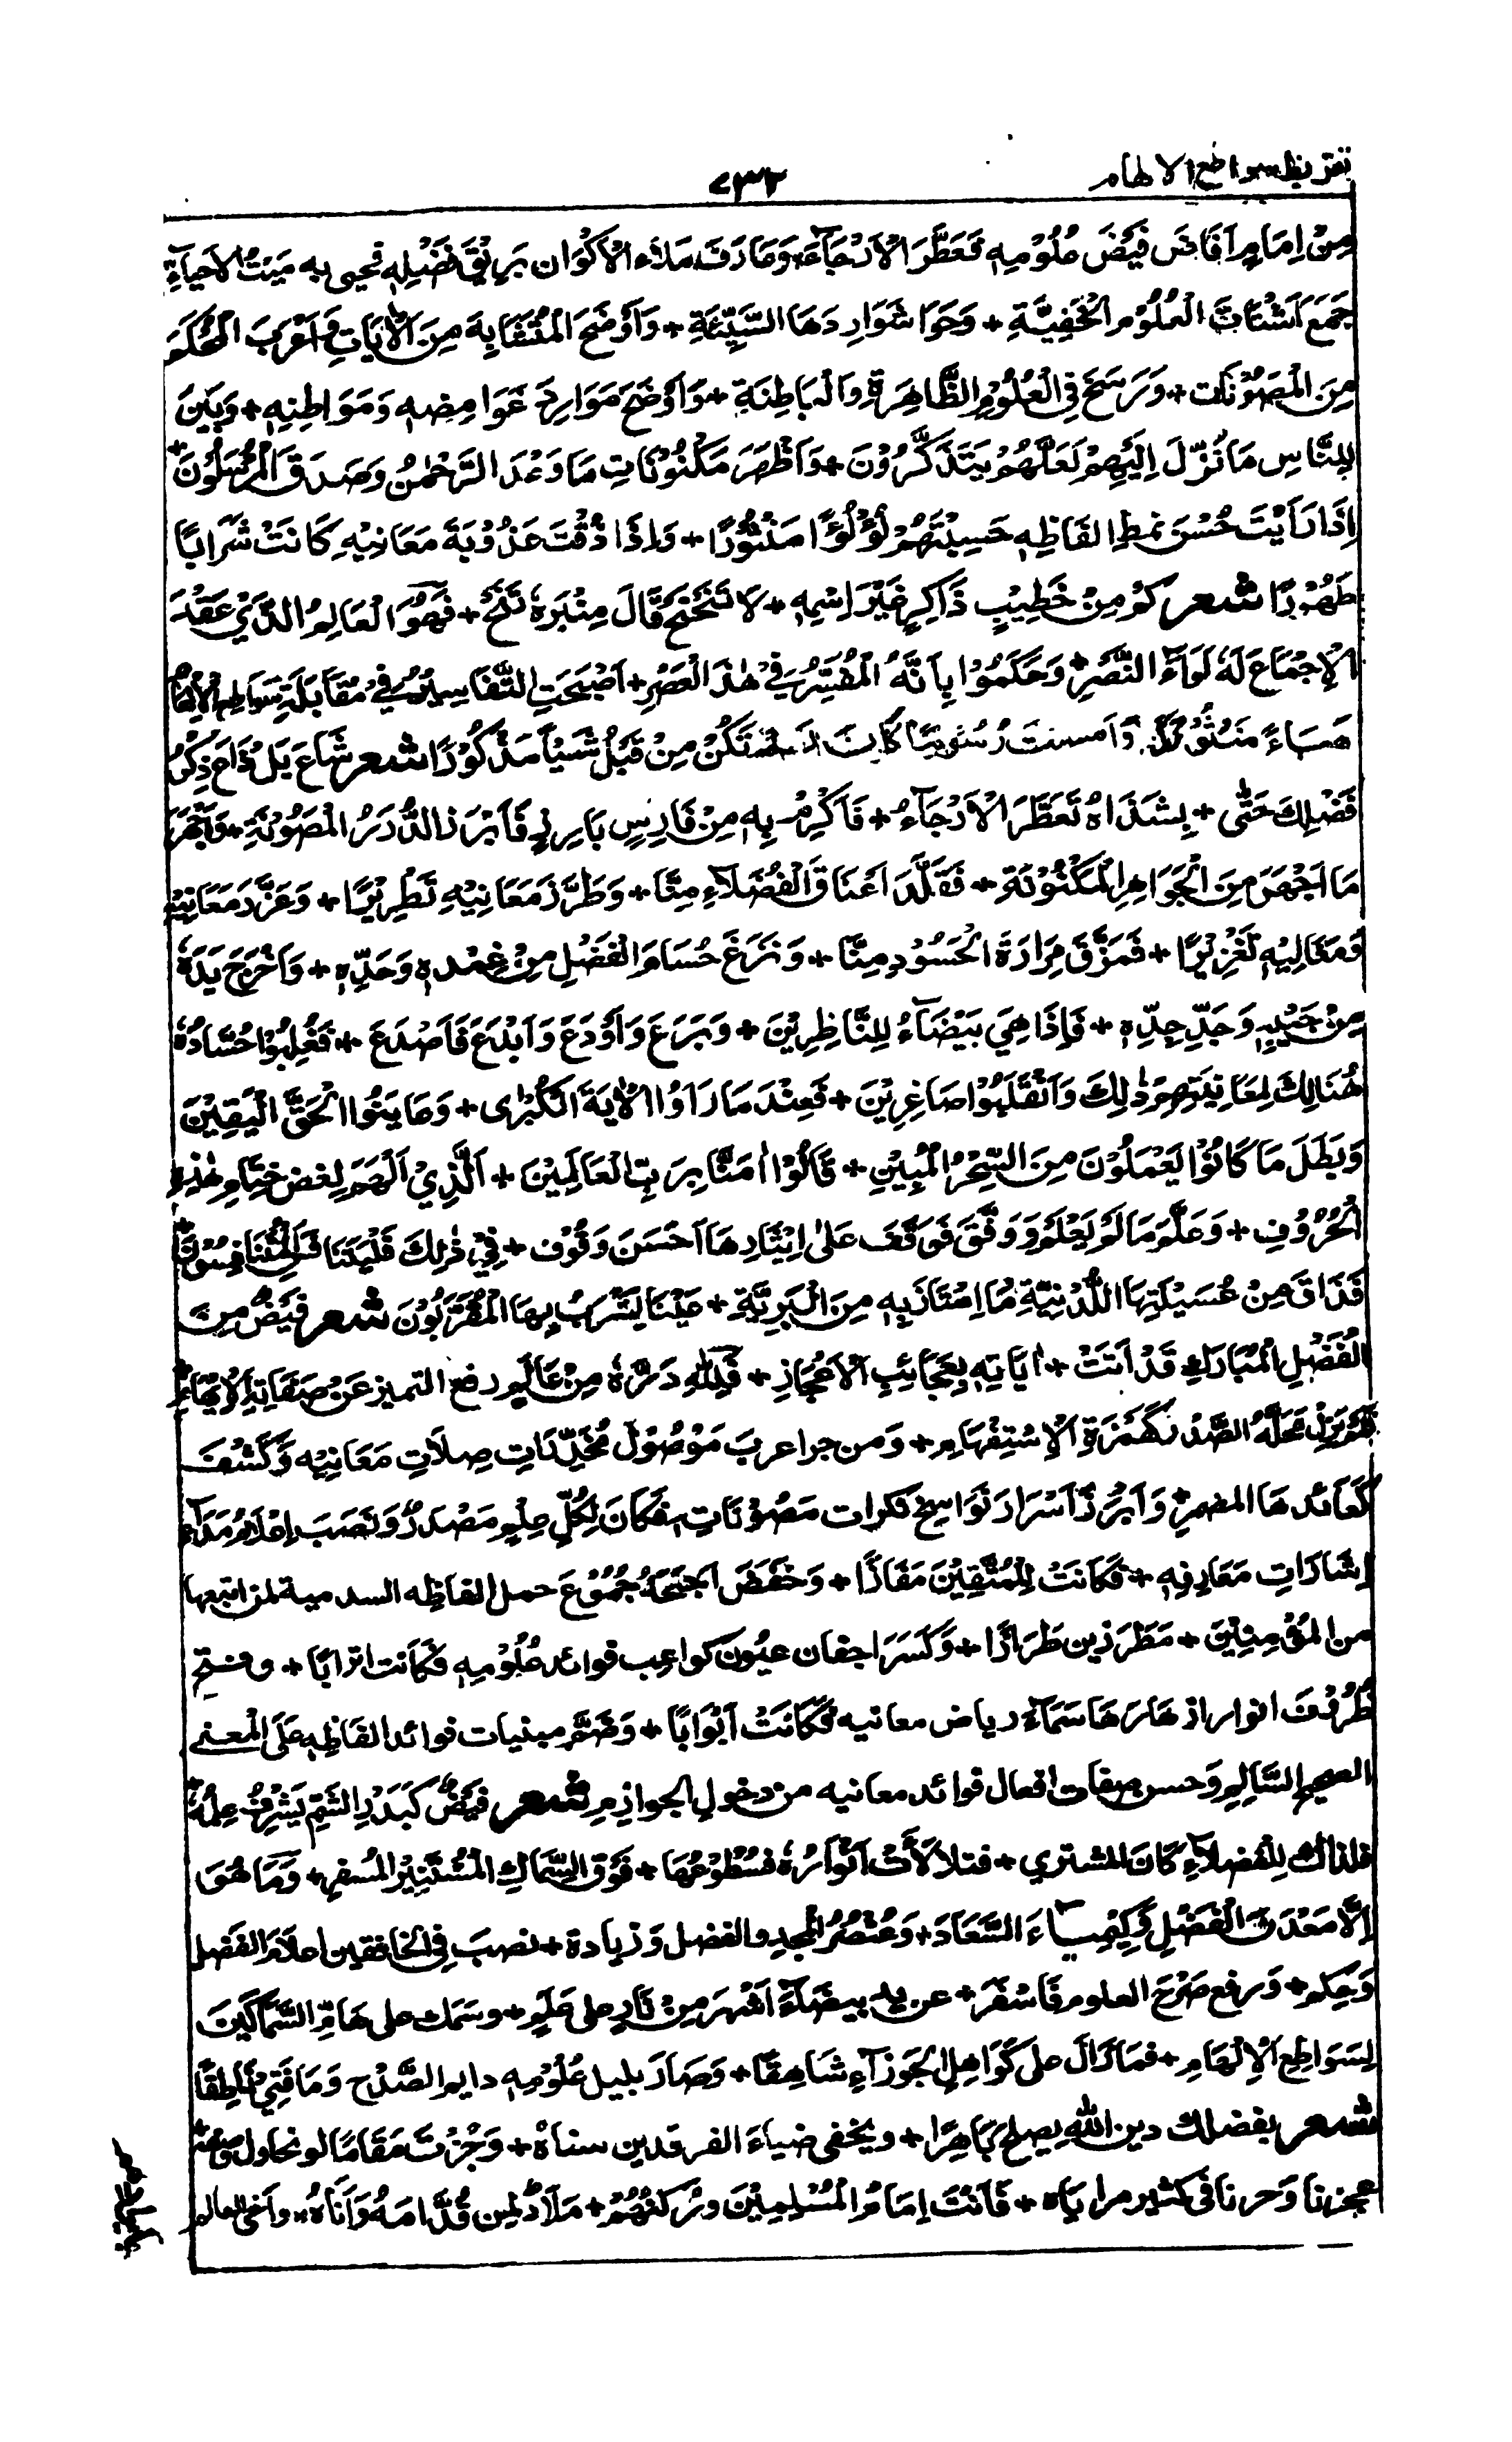 تقريظ سواطع الالهام
٧٣٢
مِنْ اِمَامٍ اَفَاضَ فَيْضَ عُلُوْمِهٖ فَعَطَّرَ الْاَرْجَآءَ وَ مَلَاَ الْاَكْوَان بَرِيْقَ فَضْلِهٖ فحيى به مَيِّتُ الْاَحْيَآءِ
جَمَعَ اَشْتَاتَ الْعُلُوْمِ الْخَفِيَّةِ + وَحَوَا شَوَارِدَهَا السَّيِّئَةِ + وَاَوْضَحَ الْمُتَشَابِهَ مِنَ الْاٰيَاتِ وَاَعْرَبَ الْمُحْكَمَ
مِنَ الْمَصُوْنَات + وَرَسَخَ فِي الْعُلُوْمِ الظَّاهِرَةِ وَالْبَاطِنَةِ + وَاَوْضَحَ مَوَارِدَ غَوَامِضِهٖ وَمَوَاطِنِهٖ + وَبَيَّنَ
لِلنَّاسِ مَا نُزِّلَ اِلَيْهِمْ لَعَلَّهُمْ يَتَذَكَّرُوْنَ + وَاَظْهَرَ مَكْنُوْنَاتِ مَا وَعَدَ الرَّحْمٰنُ وَصَدَقَ الْمُرْسَلُوْنَ +
اِذَا رَاَيْتَ حُسْنَ نمطِ الفَاظِهٖ حَسِبْتَهُمْ لُؤْلُؤًا مَنْثُوْرًا + وَاِذَا ذُقْتَ عَذُوْبَةَ مَعَانِيْهِ كَانَتْ شَرَابًا
طَهُوْرًا شعر كَمْ مِنْ خَطِيْبٍ ذَاكِرٍ غَيْرَ اِسْمِهٖ + لَا تَنَحْنَحْ قَالَ مِنْبَرُهٗ تَنَحْ + فَهُوَ الْعَالِمُ الَّذِيْ عَقَدَ
الْاِجْمَاعَ لَهٗ لِوَآءَ النَّصْرِ + وَحَكَمُوْا بِاَنَّهُ الْمُفَسِّرُ فِيْ هٰذَا الْعَصْرِ + اَصْبَحَتِ التَّفَاسِيْرُ فِيْ مُقَابَلَةِ سَوَاطِعِ الْاِلْهَامِ
هَبَاءً مَنْثُوْرًا + وَاَمست كَانت لَمْ تَكُنْ مِنْ قَبْلُ شَيْئًا مَذْكُوْرًا شعر شَاعَ بَلْ ذَاعَ ذِكْرُ
فَضْلِكَ حَتّٰى + بِشَذَاهُ تَعَطَّرَ الْاَرْجَآءُ + فَاَكْرِمْ بِهٖ مِنْ فَارِسٍ بَارِعٍ فَاَبْرَزَ الدُّرَرَ الْمَصُوْنَةِ +
مَا اَجْهَرَ مِنَ الْجَوَاهِرِ الْمَكْنُوْنَةِ + فَقَلَّدَ اَعْنَاقَ الْفُضَلَآءِ مِنَّا + وَطَرَّزَ مَعَانِيْهِ تَطْرِيْزًا + وَعَزَّزَ مَعَانِيْهِ
وَمَعَالِيْهِ تَعْزِيْزًا + فَمَزَّقَ مَرَارَةَ الْحَسُوْدِ مِنَّا + وَنَزَعَ حُسَامَ الْفَضْلِ مِنْ غِمْدِهٖ وَحَدِّهٖ + وَاَخْرَجَ يَدَهٗ
مِنْ جَيْبِهٖ وَجَدِّ جِدِّهٖ + فَاِذَا هِيَ بَيْضَآءُ لِلنَّاظِرِيْنَ + وَبَرَعَ وَاَوْدَعَ وَاَبْدَعَ فَاَصْدَعَ + فَغُلِبُوْا حُسَّادُهٗ
هُنَالِكَ لِمُعَايَنَتِهِمْ ذٰلِكَ وَانْقَلَبُوْا صَاغِرِيْنَ + فَعِنْدَ مَا رَاَوُا الْاٰيَةَ الْكُبْرٰى + وَعَايَنُوا الْحَقَّ الْيَقِيْنَ
وَبَطَلَ مَا كَانُوْا يَعْمَلُوْنَ مِنَ السِّحْرِ الْمُبِيْنِ + قَالُوْا اٰمَنَّا بِرَبِّ الْعَالَمِيْنَ + اَلَّذِيْ اَلْهَمَ لِفض خِتَامِ هٰذِهِ
الْحُرُوْفِ + وَعَلَّمَ مَا لَمْ يَعْلَمْ وَوَفَّقَ فَوَقَفَ عَلٰى اِيْثَارِهَا اَحْسَنَ وُقُوْف + فِيْ ذٰلِكَ فَلْيَتَنَافَسِ الْمُتَنَافِسُوْنَ +
فَذَاقَ مِنْ عُسَيْلَتِهَا اللَّدُنِيَّةِ مَا اِمْتَازَ بِهٖ مِنَ الْبَرِيَّةِ + عَيْنًا يَشْرَبُ بِهَا الْمُقَرَّبُوْنَ شعر فَيْضٌ مِنَ
الْفَضْلِ الْمُبَارَكِ قَدْ اَتَتْ + اٰيَاتُهٗ بِعَجَائِبِ الْاِعْجَازِ + فَلِلّٰهِ دَرُّهٗ مِنْ عَالِمٍ رفع التميز عَنْ صِفَاتِهِ الْاِبْهَامَ +
مَحَلَّهُ الصَّدْرُ كَهَمْزَةِ الْاِسْتِفْهَامِ + وَمن جرا عرب مَوْصُوْلَ مُخَدَّرَاتِ صِلَاتِ مَعَانِيْهِ وَكَشَفَ
عَآئدهَا المضمرِ + وَاَبْرَزَ اَسْرَارَ نَوَاسِخِ نكرات مَصُوْنَاتِهٖ فَكَانَ لِكُلِّ عِلْمٍ مَصْدَرٌ وَنَصَبَ اِعْلَامُ مَدَآء
اِشَارَاتِ مَعَارِفِهٖ + فَكَانَتْ لِلْمُتَّقِيْنَ مَفَازًا + وَخَفَضَ اَجْنِحَةَ جُمُوْعَ حمل الفاظه لمن اتبعها
من المؤمِنِيْنَ + مَطَرزين طَرَازًا + وَكَسَرَ اجفان عيُونَ كواعِب فوائد عُلُوْمِهٖ فَكَانت اترابًا + وفتح
ظُرُوْفَ انوار ازهَارهَا سَمَآءَ رياض معانيه فَكَانَتْ اَبْوَابًا + وَضَمَّ مبنيات فوائد الفَاظِهٖ عَلَى الْمعنى
الصحيح السَّالِمِ وَحسن صفات افعال فوائد معانيه من دخولِ الجوازِمِ شعر فَيْضٌ كَبَدْرِ التَّمِّ يَشْرِقُ عِلْمُهٗ +
فلذاك لِلْفضلَآءِ كَانَ للمشتري + فتلَالَأَتْ اَنْوَارُهٗ فسُطُوْعُهَا + فَوْقَ السِّمَاكِ الْمُسْتَنِيْرِ المُسفِر + وَمَا هُوَ
اِلَّا مَعْدَنَ الْفَضْلِ وَكِيْمِيَاءَ السَّعَادَ + وَعُنْصُرُ الْمَجْدِ والفضل وَزيادة + نصبَ فِى الخافقين اعلَامَ الفَضل
وَحِكَم + وَرفع صَرْحَ العلوم فَاسْفَرَ + عن يدٍ بيضَآءَ اَشْهَرَ مِنْ نَارٍ على عَلَمٍ + وسَمَكَ على هَامِّ السَّمَاكَيْنَ
لِسَوَاطِعِ الْاِلْهَامِ + فمَا زَالَ على كَوَاهِلِ الْجَوْزَآءِ شَاهِقًا + وَصَارَ بلبل عُلُوْمِهٖ دايم الصَّدْح وَمَا فَتِئَ نَاطِقًا
شعر بفضلك دين اللّٰهِ يصلح بَاهِرًا + ويخفى ضياءَ الفرقدين سناهُ + وَجُزْتَ مَقَامًا لو نحاول وصفهٗ +
عجزنا وَحرنا فى كثير مرايَاه + فَاَنْتَ اِمَامُ الْمُسْلِمِيْنَ وَرُكْنُهُمْ + مَلَاذٌ لمن قُدَّامَهُ وَاَنَاهُ + واخى العالم